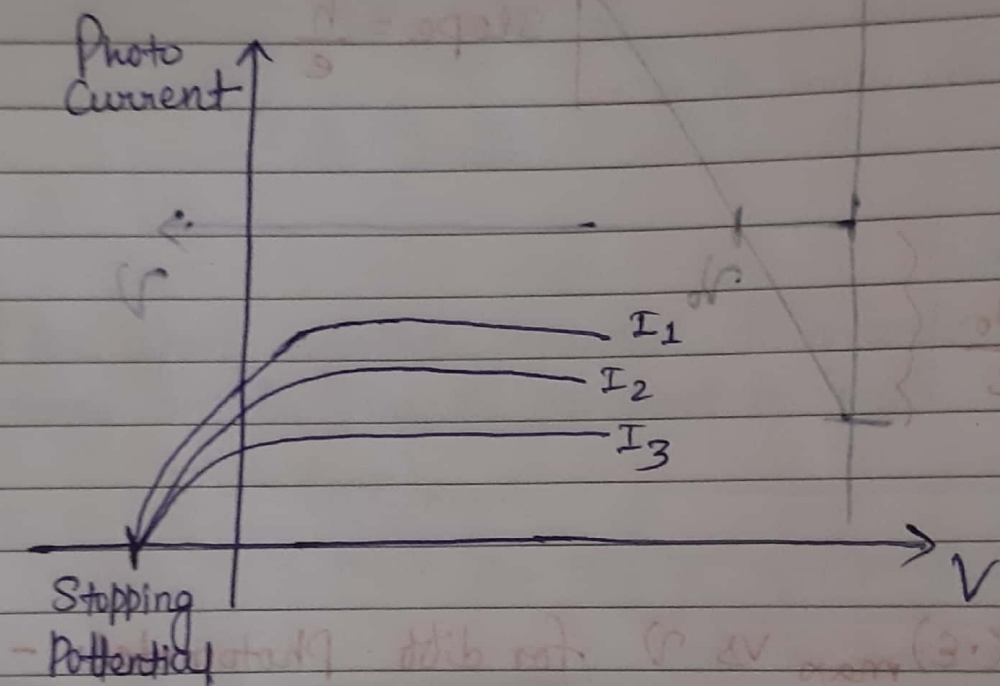 Photo
Current
I1
I2
I3
V
Stopping
Pottential